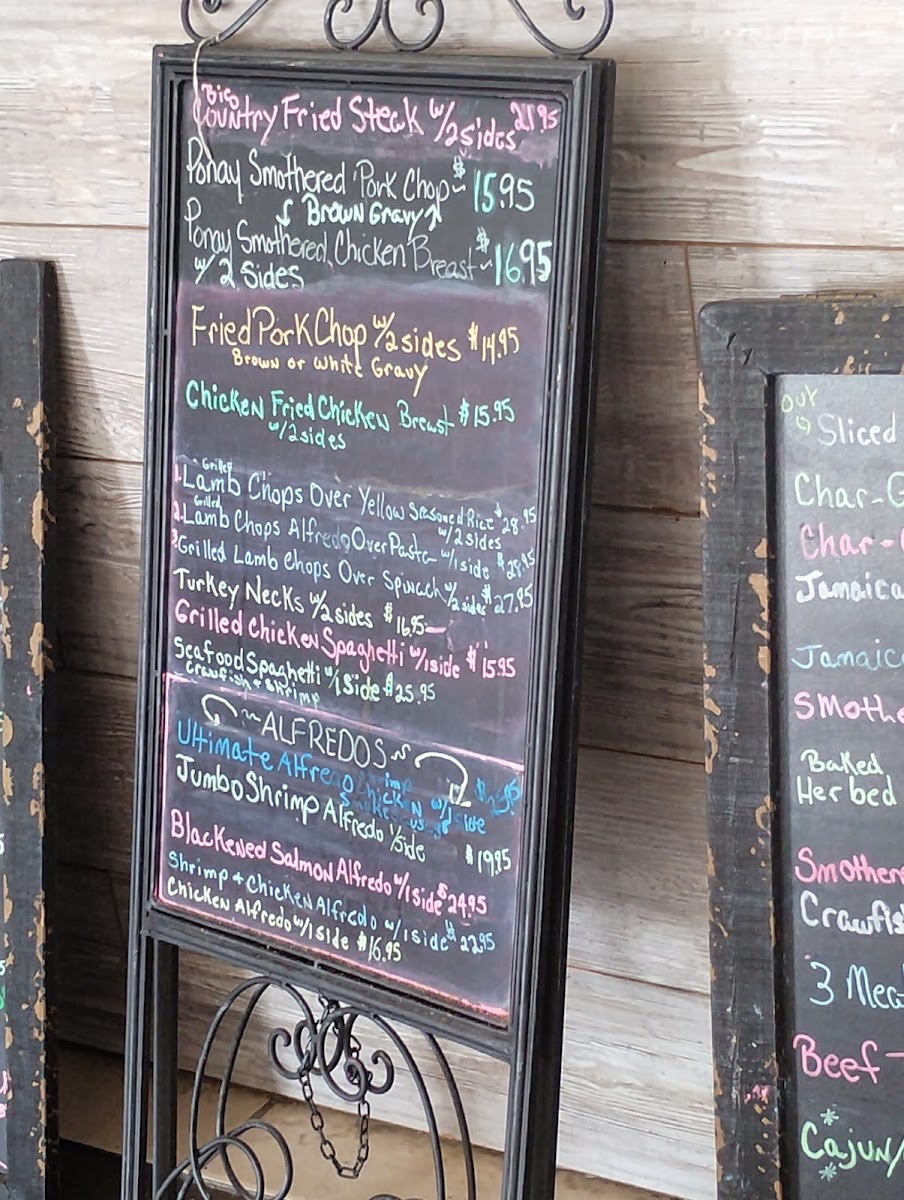 Big
Country Fried Steak w/2sides 21.95
Ponay Smothered Pork Chop~ $15.95
Brown Gravy
Ponay Smothered Chicken Breast~ $16.95
w/ 2 Sides
Fried Pork Chop w/2sides $14.95
Brown or White Gravy
Chicken Fried Chicken Breast $15.95
w/2sides
Grilled
1. Lamb Chops Over Yellow Seasoned Rice $28.95
w/2sides
Grilled
2. Lamb Chops Alfredo Over Pasta w/1side
3 Grilled Lamb Chops Over Spinach w/2sides $27.95
Turkey Necks w/2sides $16.95
Grilled Chicken Spaghetti w/1side $15.95
Seafood Spaghetti w/1side $25.95
Crawfish + Shrimp
~ALFREDOS~
Ultimate Alfredo Shrimp
Chicken w/1 side
Jumbo Shrimp Alfredo 1/side $19.95
Blackened Salmon Alfredo w/1side $24.95
Shrimp + Chicken Alfredo w/1side $22.95
Chicken Alfredo w/1side $16.95
out
Sliced
Char-G
Char-
Jamaica
Jamaic
Smothe
Baked
Herbed
Smothere
Crawfis
3 Mea
Beef-
Cajun/